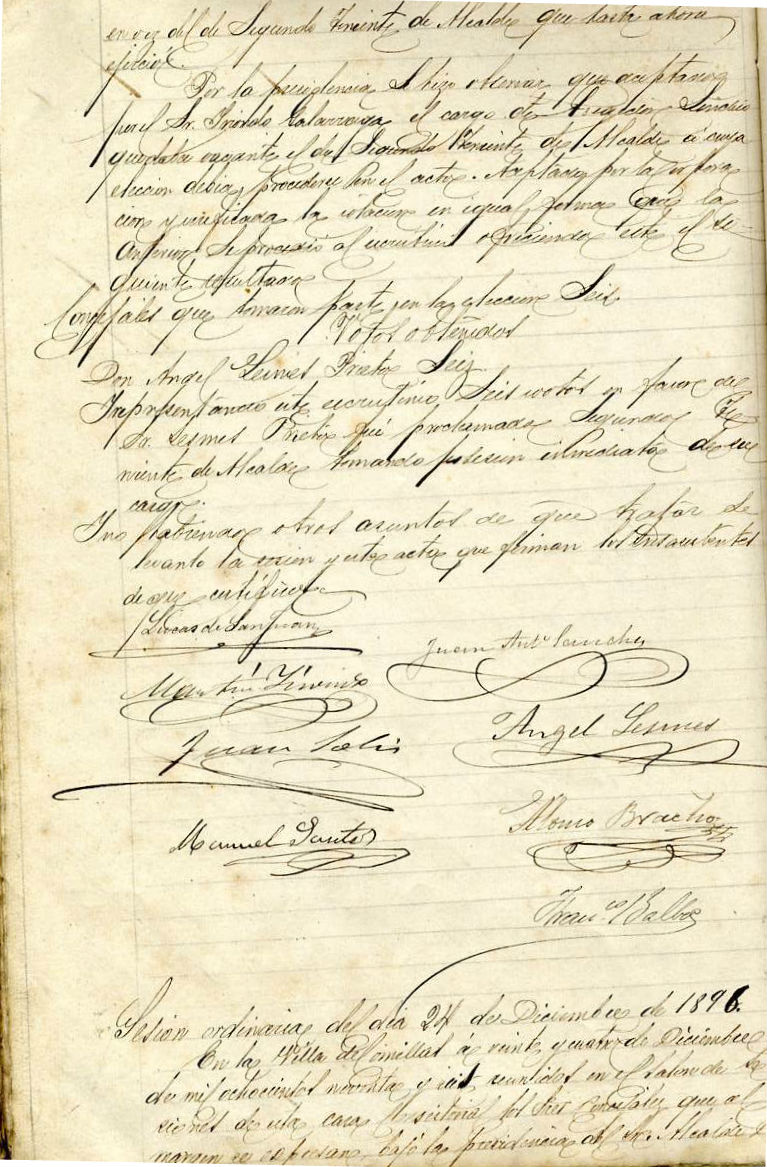 en vez del de Segundo Teniente de Alcalde que hasta ahora
ejerció.
Por la presidencia se hizo observar que aceptado
por el Sr. el cargo de Regidor Síndico
quedaba vacante el de Segundo Teniente de Alcalde á cuya
elección debía procederse en el acto. Aceptado por la corpora
cion y verificada la votacion en igual forma que la
anterior se procedió al escrutinio ofreciendo este el si-
guiente resultado
Concejales que tomaron parte en la eleccion Seis
Votos obtenidos
Don Angel Lesmes Prieto Seis
Y representando este escrutinio Seis votos en favor del
Sr. Lesmes Prieto fué proclamado Segundo Te
niente de Alcalde tomando posesion inmediata de su
cargo.
Y no habiendo otros asuntos de que tratar se
levanto la sesion y esta acta que firman los concurrentes
de que certifico
Lucas de Sanjuan
Juan Ant.º Sanchez
Martin
Angel Lesmes
Juan Solis
Alonso Bracho
Manuel Santos
Fran.co Balbo
Sesion ordinaria del dia 24 de Diciembre de 1896.
En la Villa de á veinte y cuatro de Diciembre
de mil ochocientos noventa y seis reunidos en el salon de se
siones de esta casa Consistorial los Sres Concejales que al
margen se expresan bajo la presidencia del Sr. Alcalde